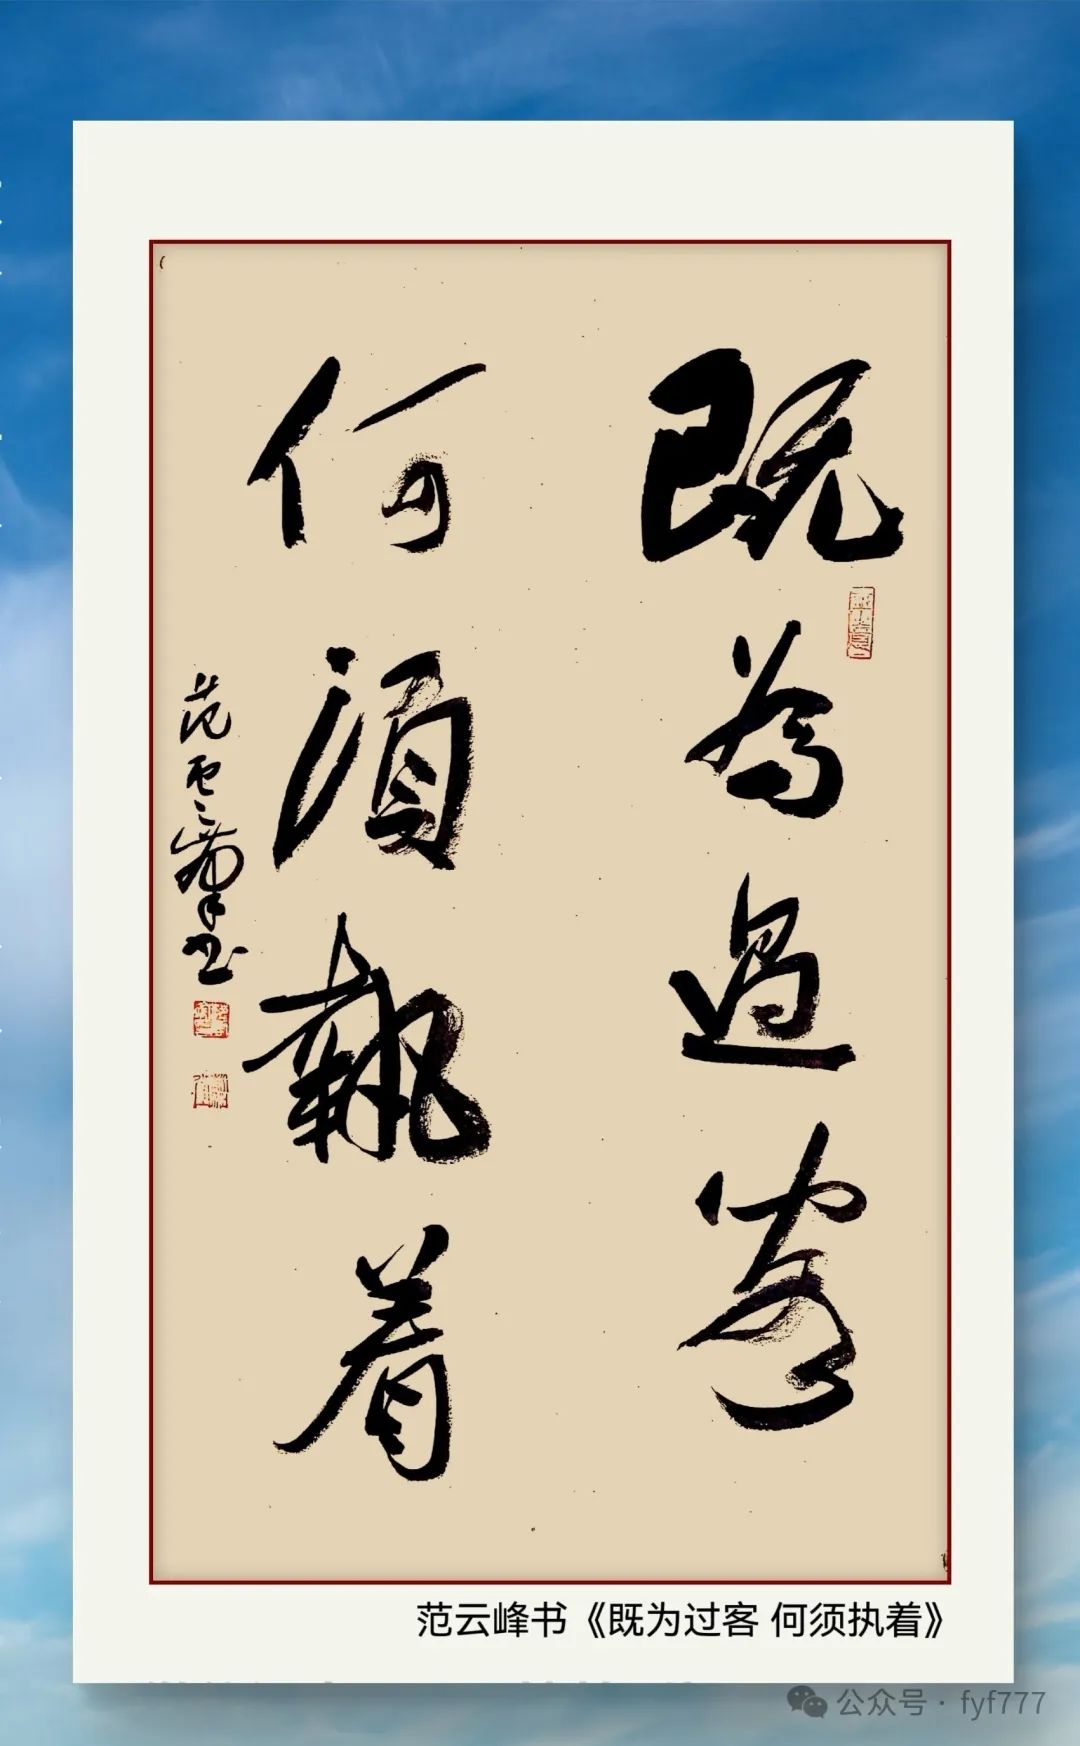 既為過客
何須執着
范云峰书
范云峰书《既为过客 何须执着》
公众号 · fyf777